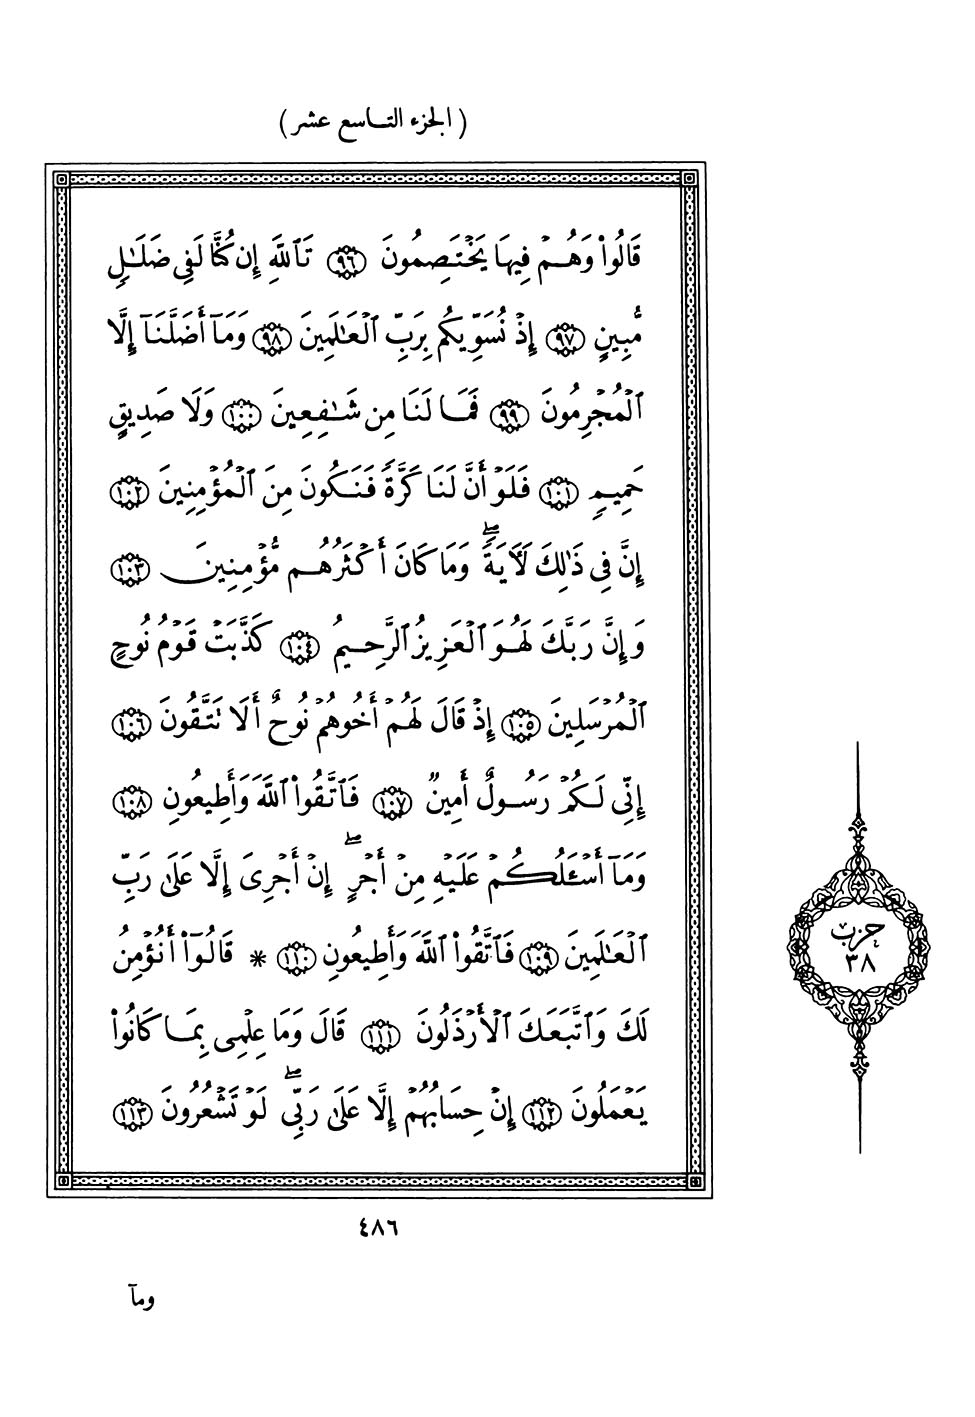 ( الجزء التاسع عشر )
قَالُوا۟ وَهُمْ فِيهَا يَخْتَصِمُونَ ٩٦ تَٱللَّهِ إِن كُنَّا لَفِى ضَلَـٰلٍ
مُّبِينٍ ٩٧ إِذْ نُسَوِّيكُم بِرَبِّ ٱلْعَـٰلَمِينَ ٩٨ وَمَآ أَضَلَّنَآ إِلَّا
ٱلْمُجْرِمُونَ ٩٩ فَمَا لَنَا مِن شَـٰفِعِينَ ١٠٠ وَلَا صَدِيقٍ
حَمِيمٍ ١٠١ فَلَوْ أَنَّ لَنَا كَرَّةً فَنَكُونَ مِنَ ٱلْمُؤْمِنِينَ ١٠٢
إِنَّ فِى ذَٰلِكَ لَـَٔايَةًۖ وَمَا كَانَ أَكْثَرُهُم مُّؤْمِنِينَ ١٠٣
وَإِنَّ رَبَّكَ لَهُوَ ٱلْعَزِيزُ ٱلرَّحِيمُ ١٠٤ كَذَّبَتْ قَوْمُ نُوحٍ
ٱلْمُرْسَلِينَ ١٠٥ إِذْ قَالَ لَهُمْ أَخُوهُمْ نُوحٌ أَلَا تَتَّقُونَ ١٠٦
إِنِّى لَكُمْ رَسُولٌ أَمِينٌ ١٠٧ فَٱتَّقُوا۟ ٱللَّهَ وَأَطِيعُونِ ١٠٨
وَمَآ أَسْـَٔلُكُمْ عَلَيْهِ مِنْ أَجْرٍۖ إِنْ أَجْرِىَ إِلَّا عَلَىٰ رَبِّ
ٱلْعَـٰلَمِينَ ١٠٩ فَٱتَّقُوا۟ ٱللَّهَ وَأَطِيعُونِ ١١٠ * قَالُوٓا۟ أَنُؤْمِنُ
لَكَ وَٱتَّبَعَكَ ٱلْأَرْذَلُونَ ١١١ قَالَ وَمَا عِلْمِى بِمَا كَانُوا۟
يَعْمَلُونَ ١١٢ إِنْ حِسَابُهُمْ إِلَّا عَلَىٰ رَبِّىۖ لَوْ تَشْعُرُونَ ١١٣
حزب
٣٨
٤٨٦
ومآ